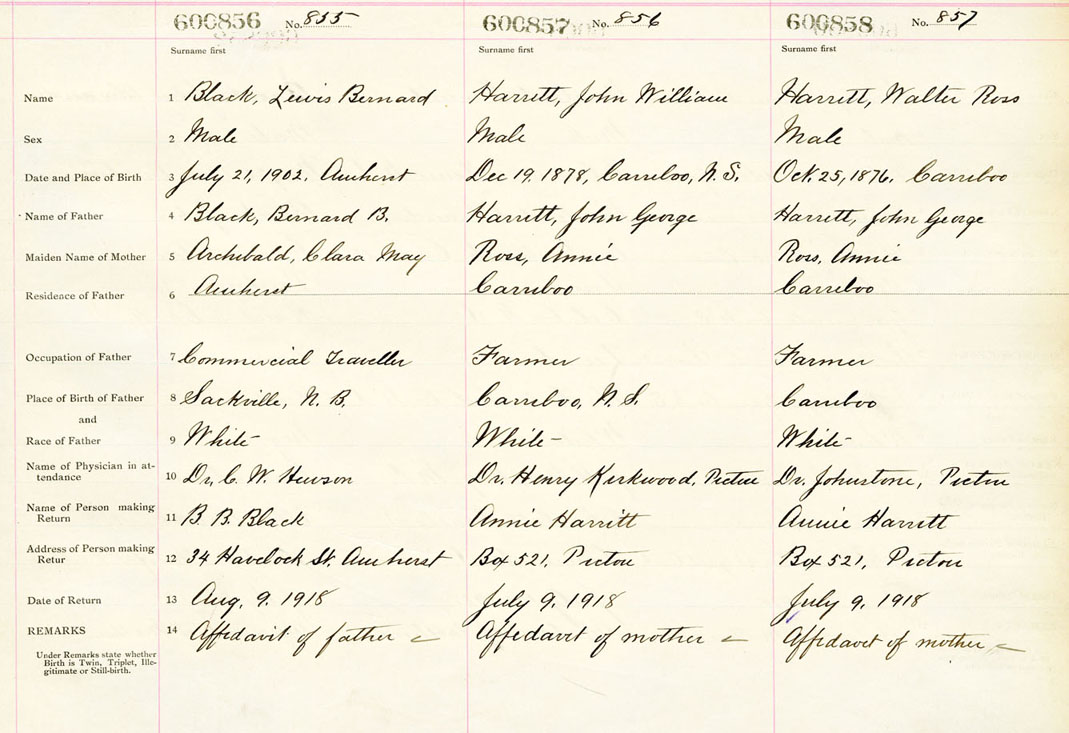 600856 No. 855 600857 No. 856 600858 No. 857
Surname first Surname first Surname first
Name 1 Black, Lewis Bernard Harrett, John William Harrett, Walter Ross
Sex 2 Male Male Male
Date and Place of Birth 3 July 21, 1902. Amherst Dec 19, 1878, Carriboo, N. S. Oct. 25, 1876. Carriboo
Name of Father 4 Black, Bernard B. Harrett, John George Harrett, John George
Maiden Name of Mother 5 Archibald, Clara May Ross, Annie Ross, Annie
Residence of Father 6 Amherst Carriboo Carriboo
Occupation of Father 7 Commercial Traveller Farmer Farmer
Place of Birth of Father 8 Sackville, N. B. Carriboo, N. S. Carriboo
and
Race of Father 9 White White White
Name of Physician in at-
tendance 10 Dr. C. W. Hewson Dr. Henry Kirkwood, Pictou Dr. Johnstone, Pictou
Name of Person making
Return 11 B. B. Black Annie Harritt Annie Harritt
Address of Person making
Retur 12 34 Havelock St. Amherst Box 521, Pictou Box 521, Pictou
Date of Return 13 Aug. 9. 1918 July 9. 1918 July 9. 1918
REMARKS 14 Affidavit of father Affedavit of mother Affidavit of mother
Under Remarks state whether
Birth is Twin, Triplet, Ille-
gitimate or Still-birth.